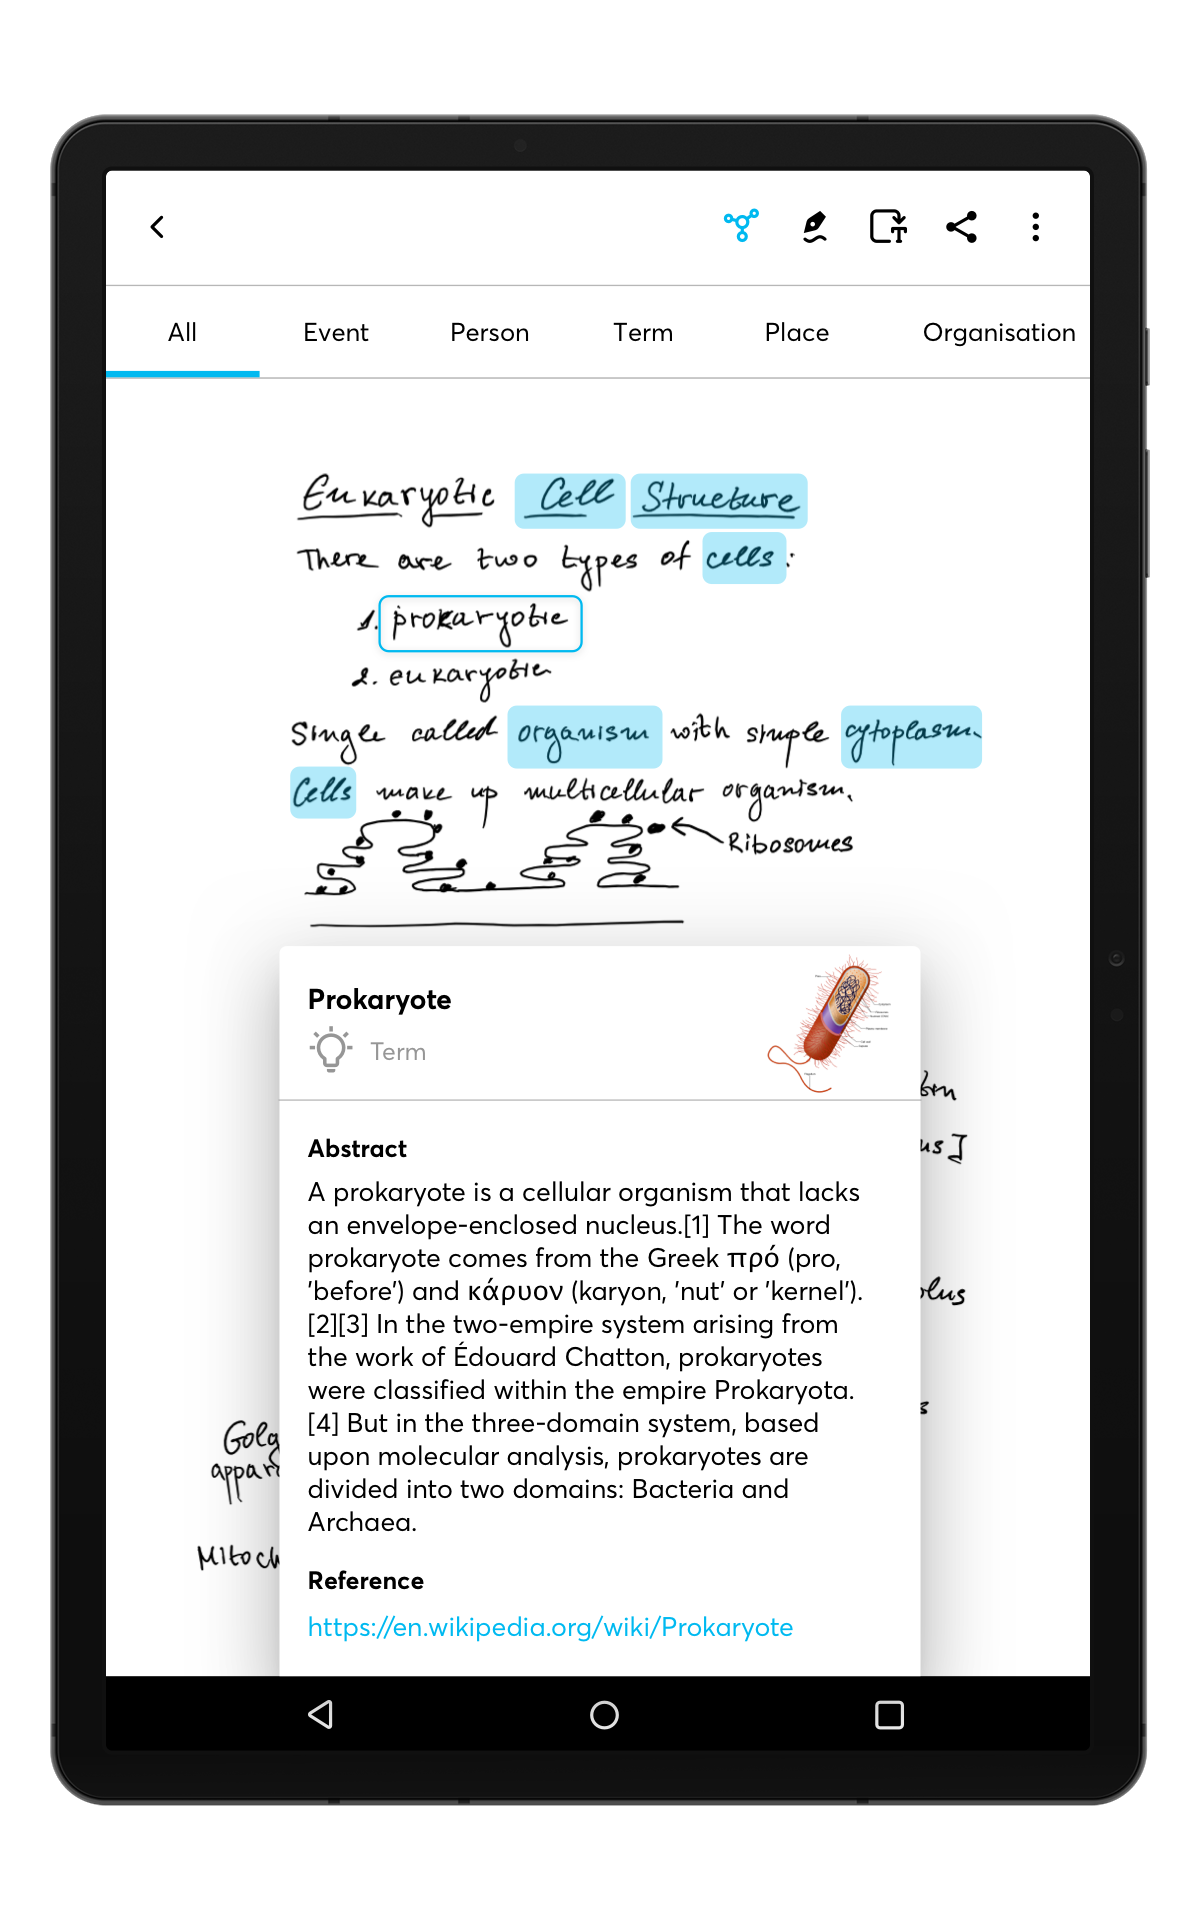 All Event Person Term Place Organisation
Eukaryotic Cell Structure
There are two types of cells:
1. prokaryotic
2. eukaryotic
Single called organism with simple cytoplasm.
Cells make up multicellular organism.
Ribosomes
Prokaryote
Term
Abstract
A prokaryote is a cellular organism that lacks
an envelope-enclosed nucleus.[1] The word
prokaryote comes from the Greek πρό (pro,
'before') and κάρυον (karyon, 'nut' or 'kernel').
[2][3] In the two-empire system arising from
the work of Édouard Chatton, prokaryotes
were classified within the empire Prokaryota.
[4] But in the three-domain system, based
upon molecular analysis, prokaryotes are
divided into two domains: Bacteria and
Archaea.
Reference
https://en.wikipedia.org/wiki/Prokaryote
us]
olus
s
Golg
appar
Mitoch